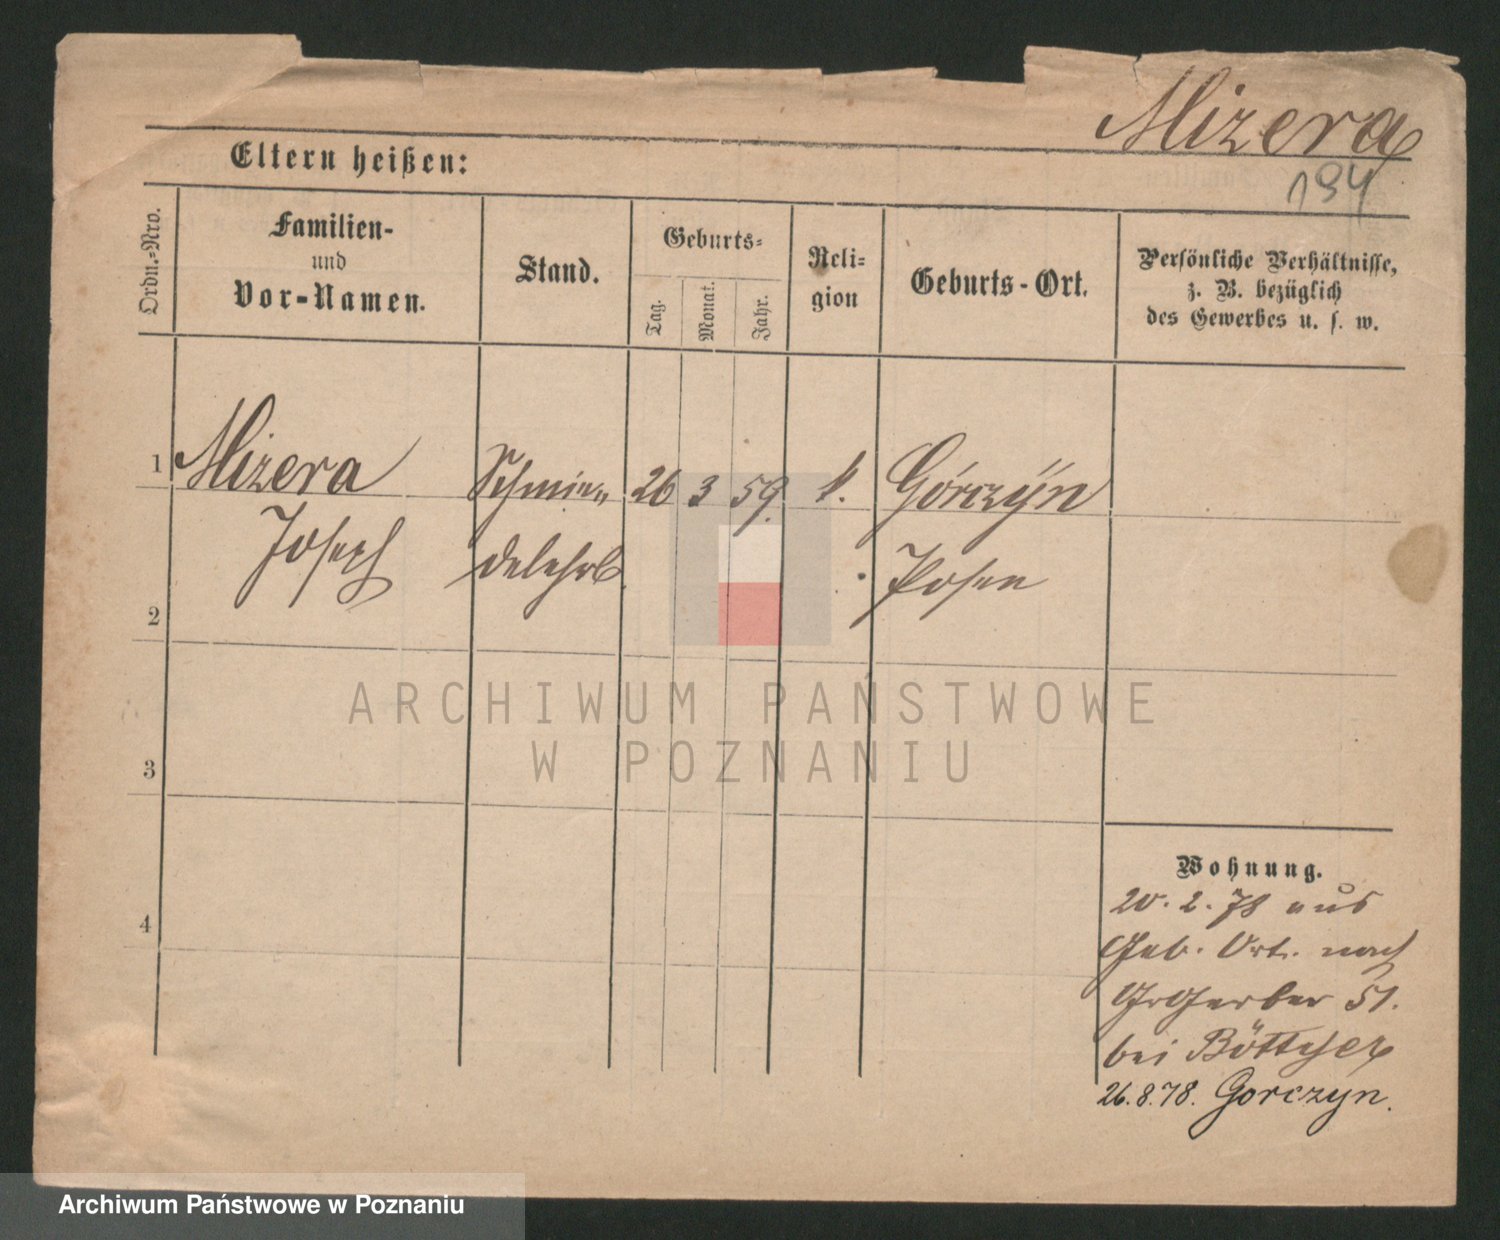 Mizera
194
Eltern heißen:
Ordn.-Nro.
Familien-
und
Vor-Namen.
Stand.
Geburts-
Tag.
Monat.
Jahr.
Reli-
gion
Geburts-Ort.
Persönliche Verhältnisse,
z. B. bezüglich
des Gewerbes u. s. w.
1 Mizera Schmie- 26 3 59. k. Górczÿn
Joseph delehrl. Posen
2
3
4
Wohnung.
20. 2. 78 aus
Geb. Ort. nach
Gr Gerber 51.
bei Böttcher
26.8.78. Gorczyn.
ARCHIWUM PAŃSTWOWE
W POZNANIU
Archiwum Państwowe w Poznaniu